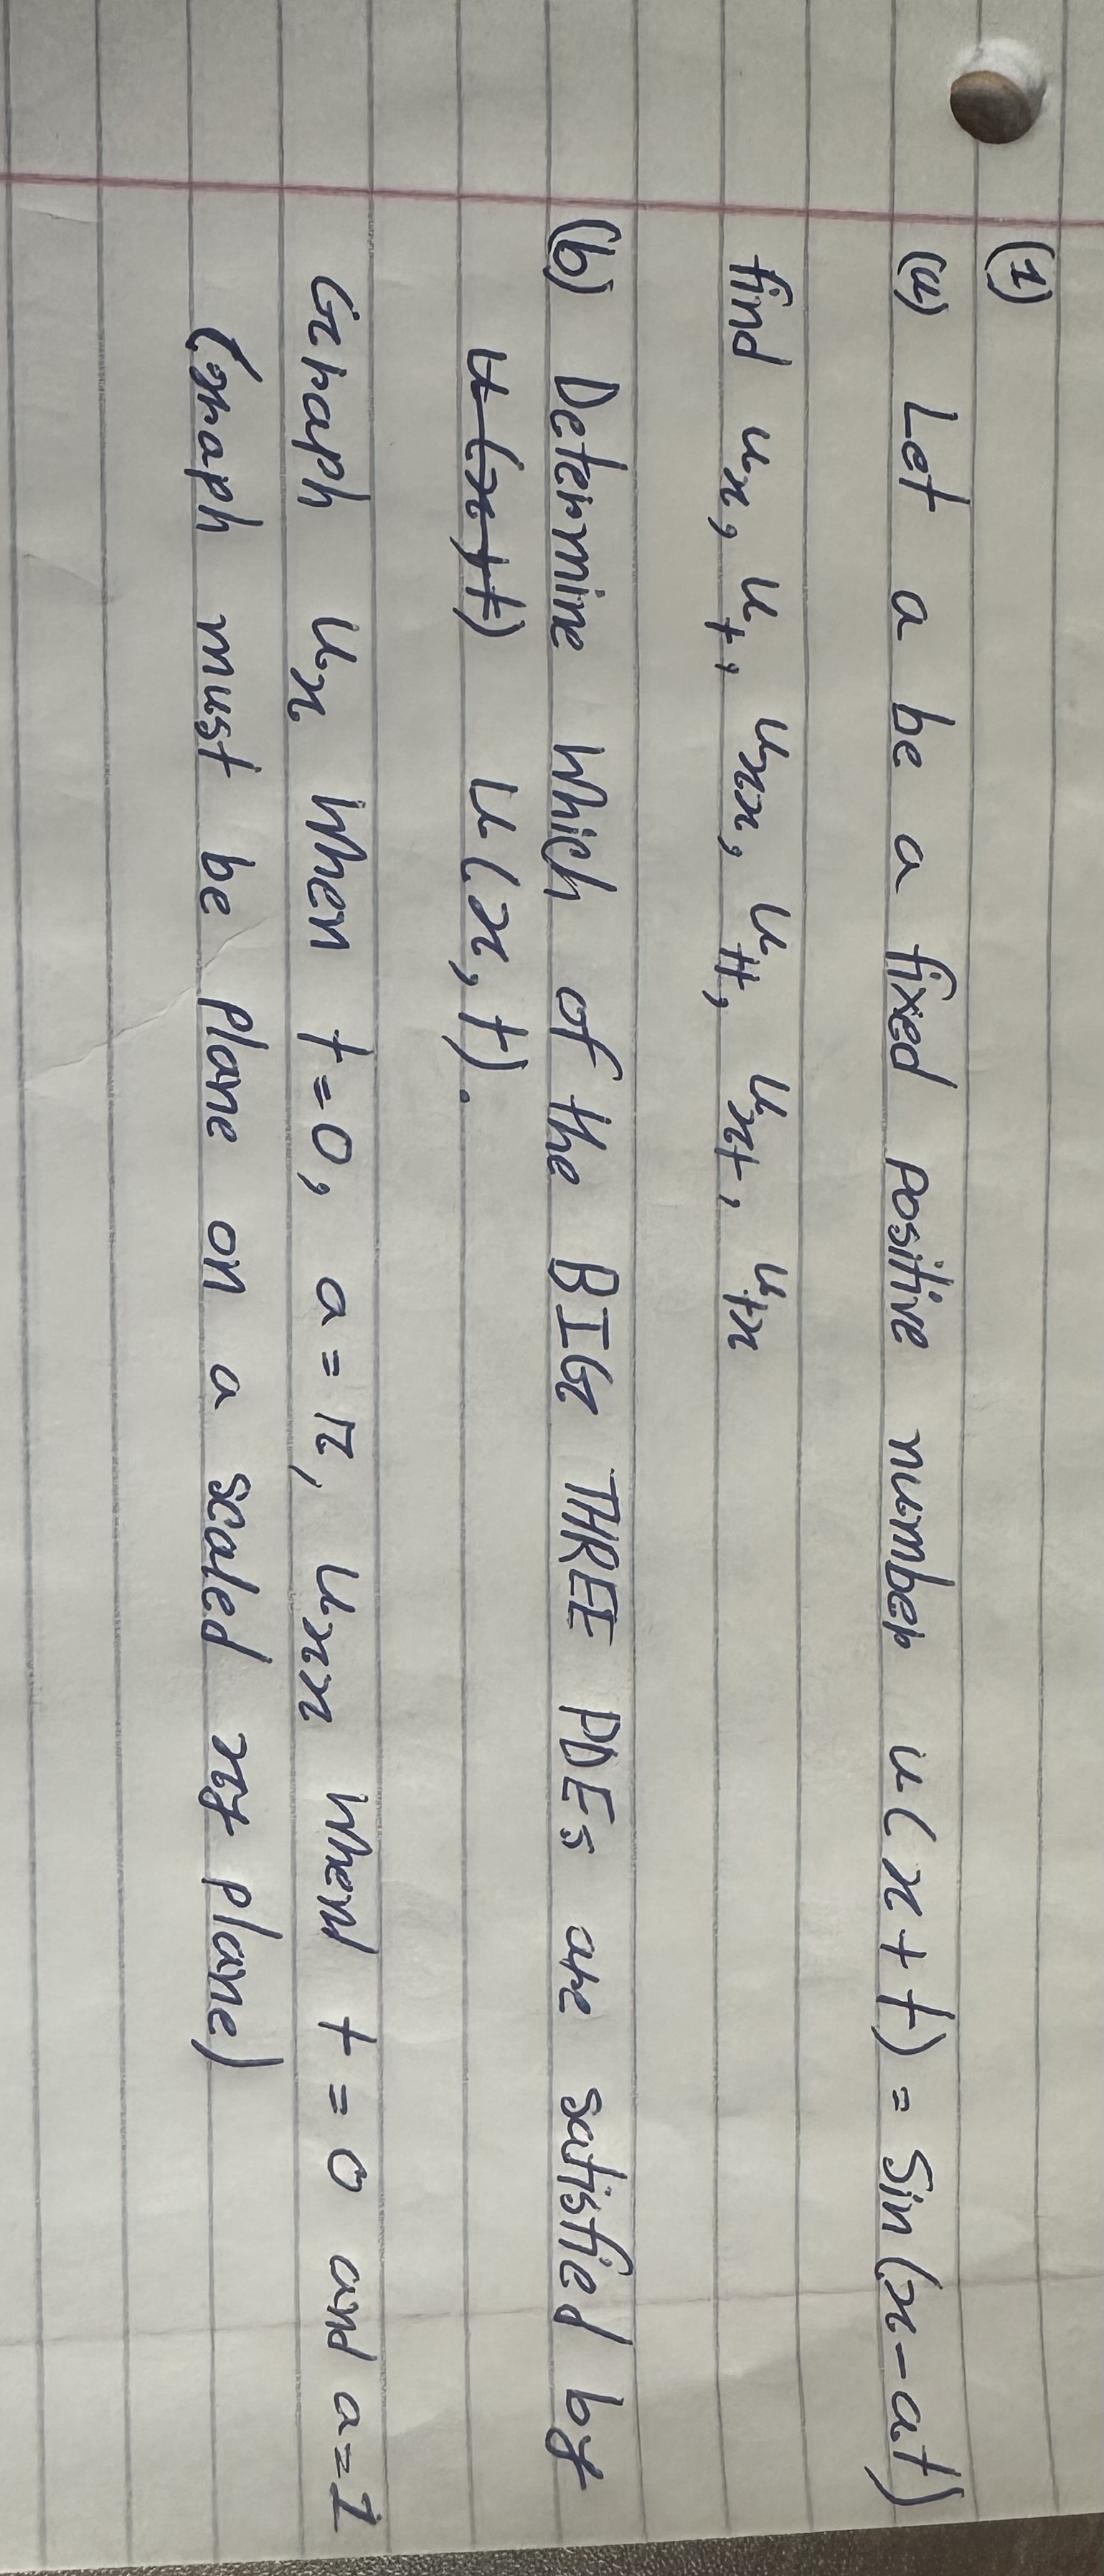 (1)
(a) Let a be a fixed positive number u(x+t) = Sin(x-at)
find ux, ut, uxx, utt, uxt, utx
(b) Determine which of the BIG THREE PDEs are satisfied by
u(x,t) u(x,t).
Graph ux when t=0, a=π, uxx when t=0 and a=1
(graph must be plane on a scaled xy plane)